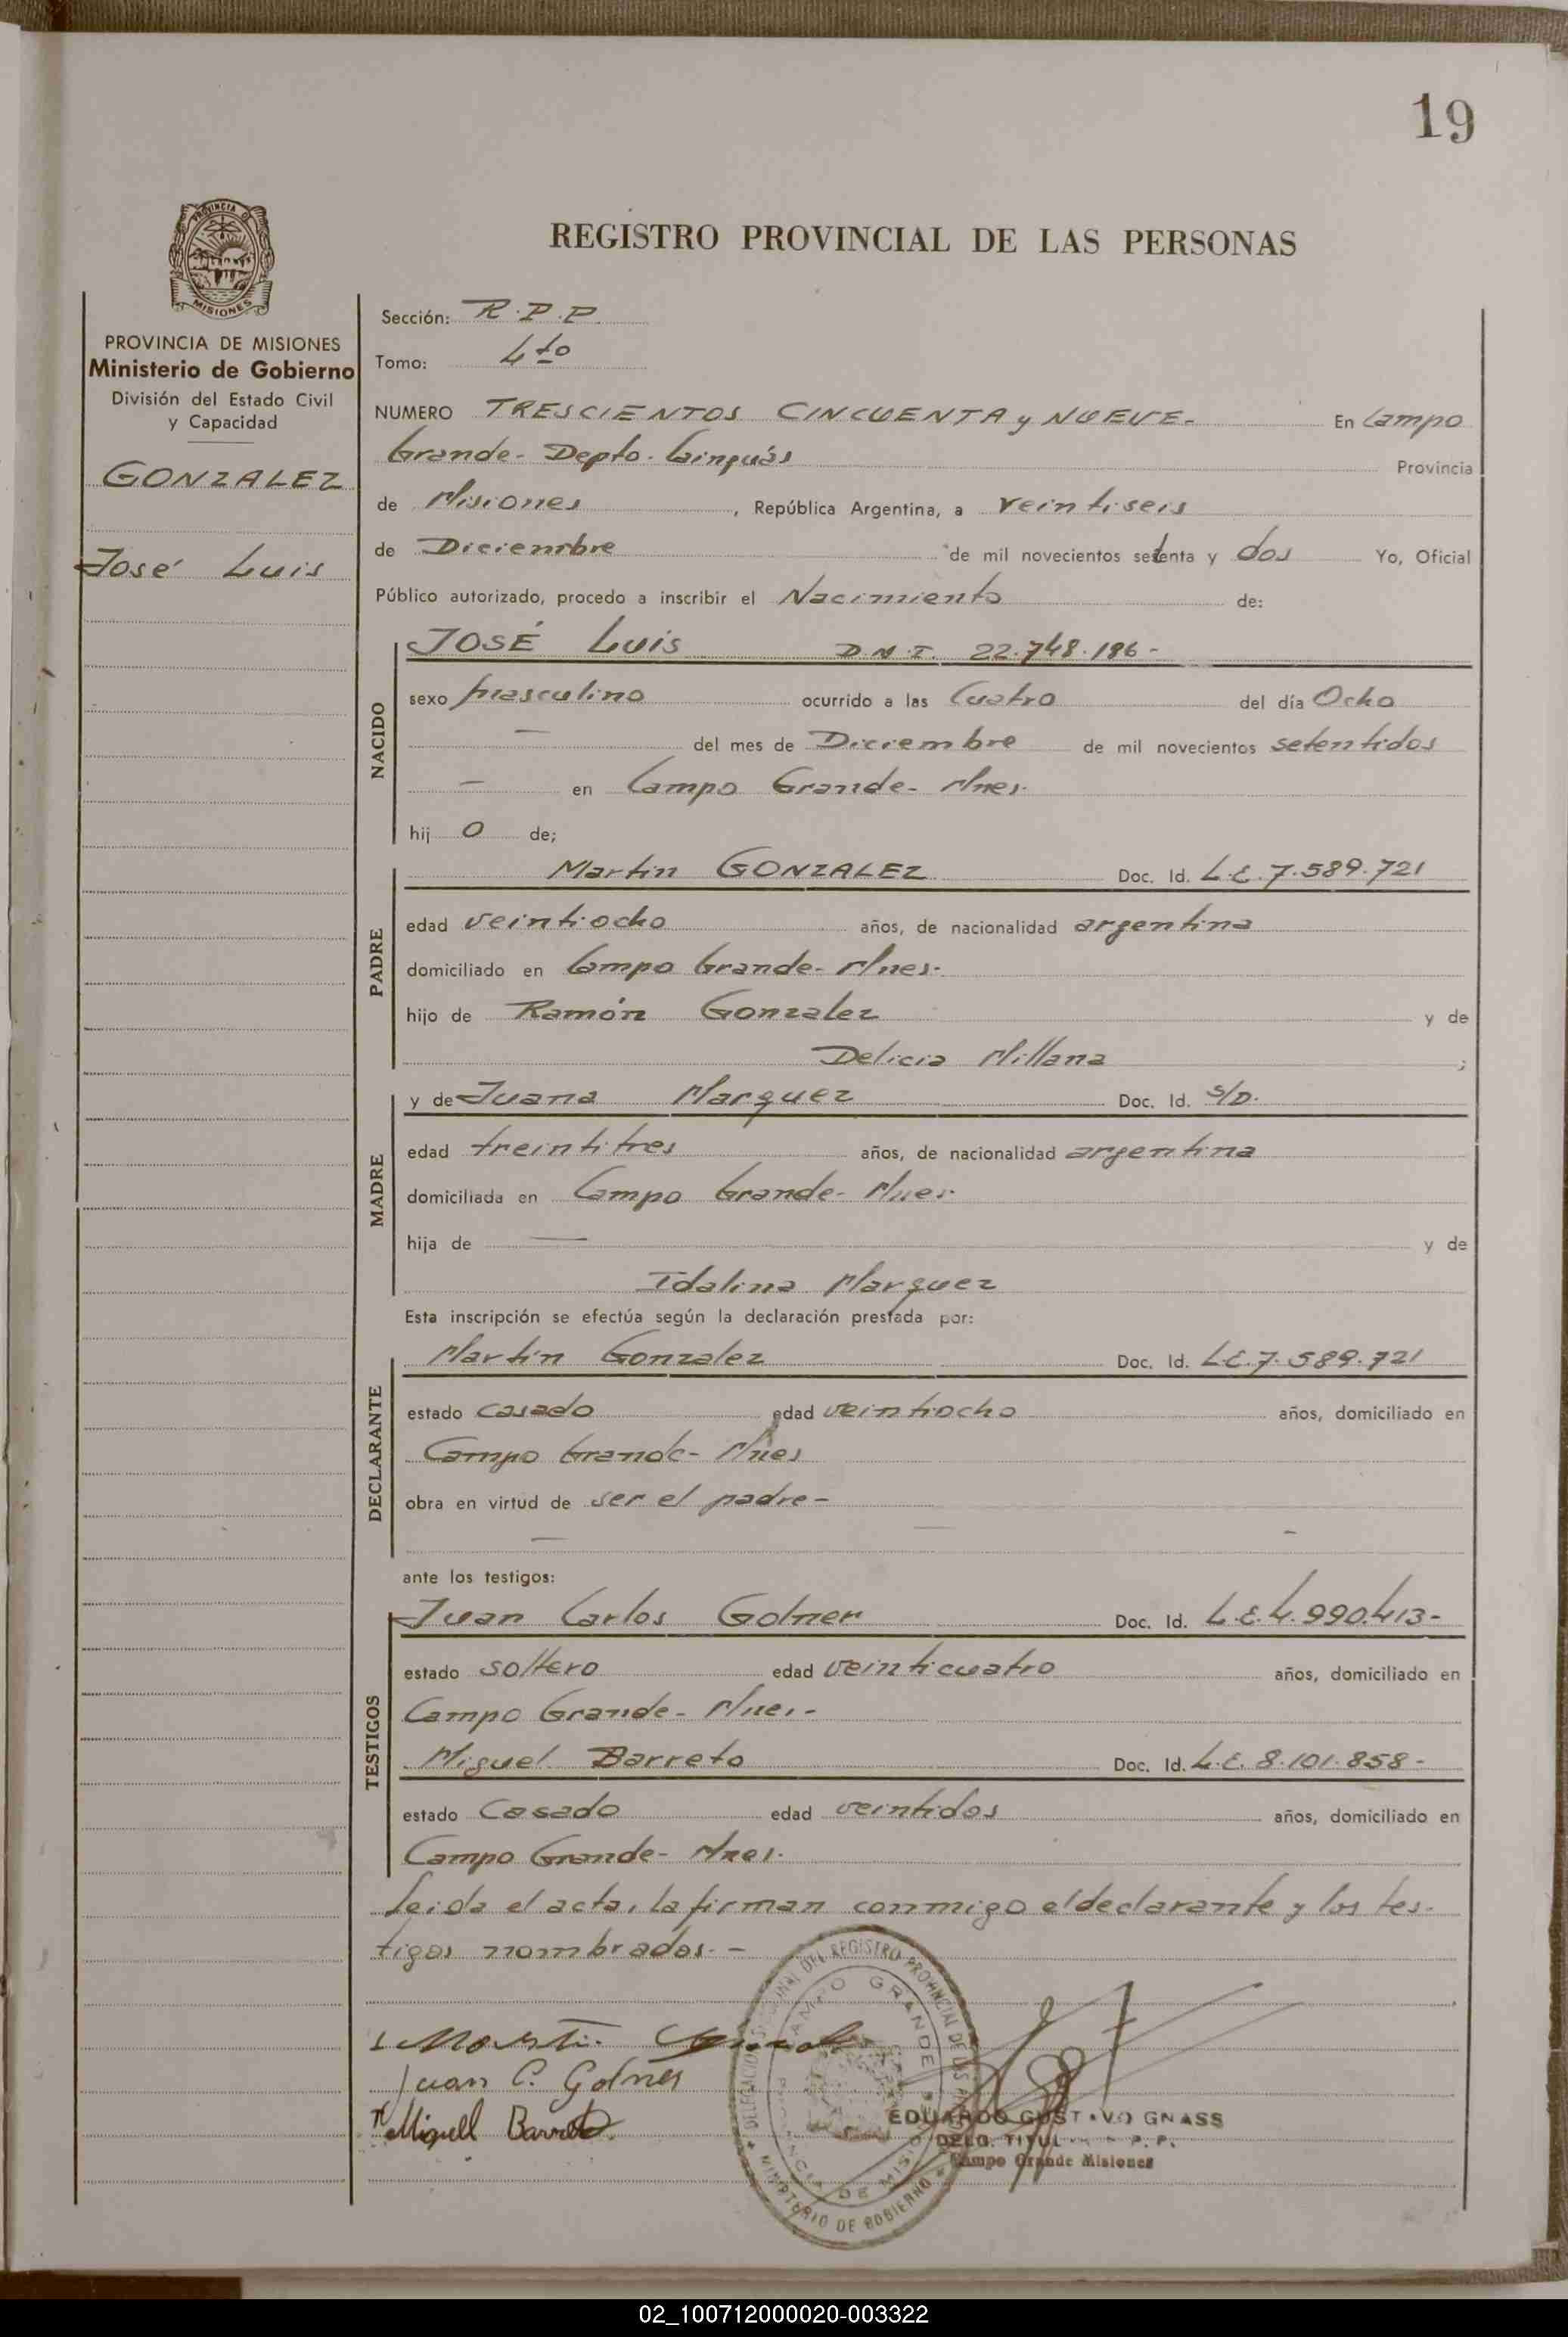 19
PROVINCIA DE MISIONES
Ministerio de Gobierno
División del Estado Civil
y Capacidad
GONZALEZ
José Luis
REGISTRO PROVINCIAL DE LAS PERSONAS
Sección: R.P.P.
Tomo: 4to
NUMERO TRESCIENTOS CINCUENTA y NUEVE- En Campo
Grande- Depto. Cainguás Provincia
de Misiones, República Argentina, a veintiseis
de Diciembre de mil novecientos setenta y dos Yo, Oficial
Público autorizado, procedo a inscribir el Nacimiento de:
NACIDO
JOSÉ Luis D.N.I. 22.748.186-
sexo masculino ocurrido a las Cuatro del día Ocho
— del mes de Diciembre de mil novecientos setentidos
— en Campo Grande- Mnes.
hij o de;
PADRE
Martin GONZALEZ Doc. Id. L.E. 7.589.721
edad veintiocho años, de nacionalidad argentina
domiciliado en Campo Grande- Mnes.
hijo de Ramón Gonzalez y de
Delicia Millana ;
MADRE
y de Juana Marquez Doc. Id. S/D.
edad treintitres años, de nacionalidad argentina
domiciliada en Campo Grande- Mnes.
hija de — y de
Idalina Marquez
Esta inscripción se efectúa según la declaración prestada por:
DECLARANTE
Martin Gonzalez Doc. Id. L.E. 7.589.721
estado casado edad veintiocho años, domiciliado en
Campo Grande- Mnes
obra en virtud de ser el padre-
ante los testigos:
TESTIGOS
Juan Carlos Golner Doc. Id. L.E. 4.990.413-
estado soltero edad veinticuatro años, domiciliado en
Campo Grande- Mnes.-
Miguel Barreto Doc. Id. L.E. 8.101.858-
estado Casado edad veintidos años, domiciliado en
Campo Grande- Mnes.
Leida el acta, la firman conmigo el declarante y los tes-
tigos nombrados.-
Juan C. Golner
Miguell Barreto
DEL REGISTRO PROVINCIAL DE LAS
CAMPO GRANDE
DE MISIONES
MINISTERIO DE GOBIERNO
EDUARDO GUSTAVO GNASS
DELG. TITUL P. P.
Campo Grande Misiones
02_100712000020-003322